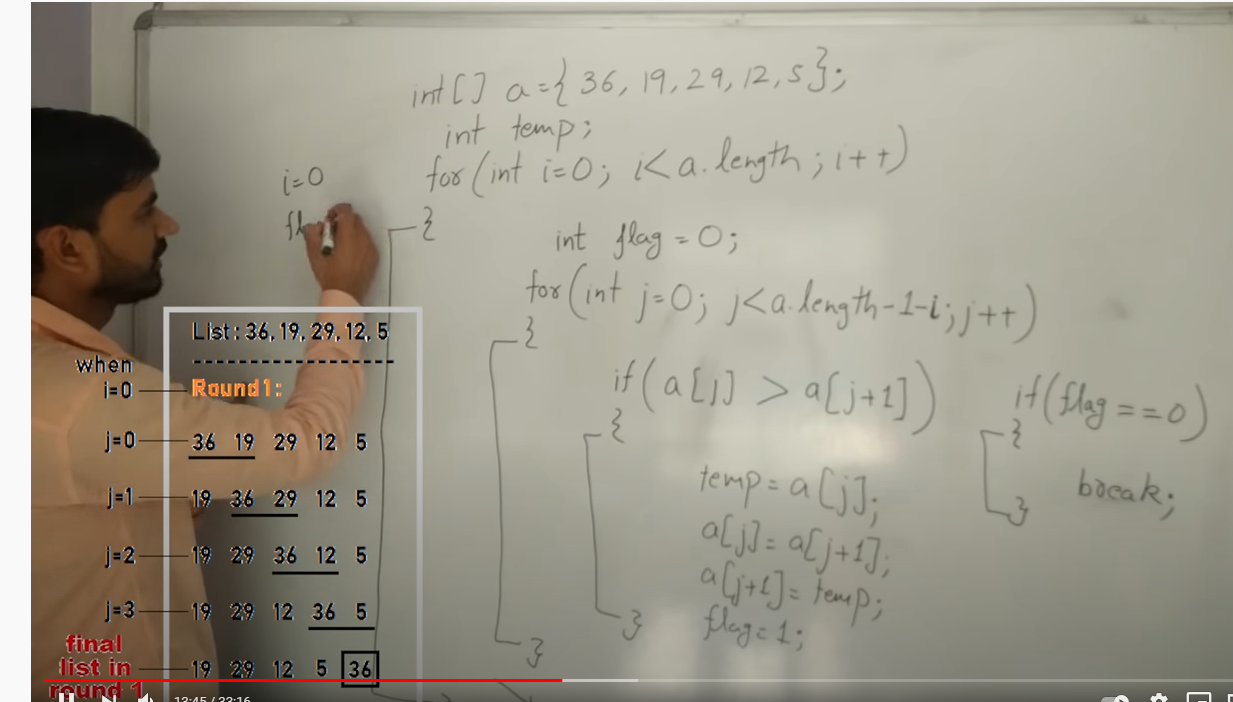 int[] a={36, 19, 29, 12, 5};
int temp;
for(int i=0; i<a.length; i++)
{
i=0
int flag = 0;
for(int j=0; j<a.length-1-i; j++)
{
if(a[j] > a[j+1])
{
temp=a[j];
a[j]=a[j+1];
a[j+1]=temp;
flag=1;
}
}
if(flag==0)
{
break;
}
List: 36, 19, 29, 12, 5
when
i=0 Round1:
j=0 36 19 29 12 5
j=1 19 36 29 12 5
j=2 19 29 36 12 5
j=3 19 29 12 36 5
final
list in 19 29 12 5 36
round 1
13:45 / 33:16